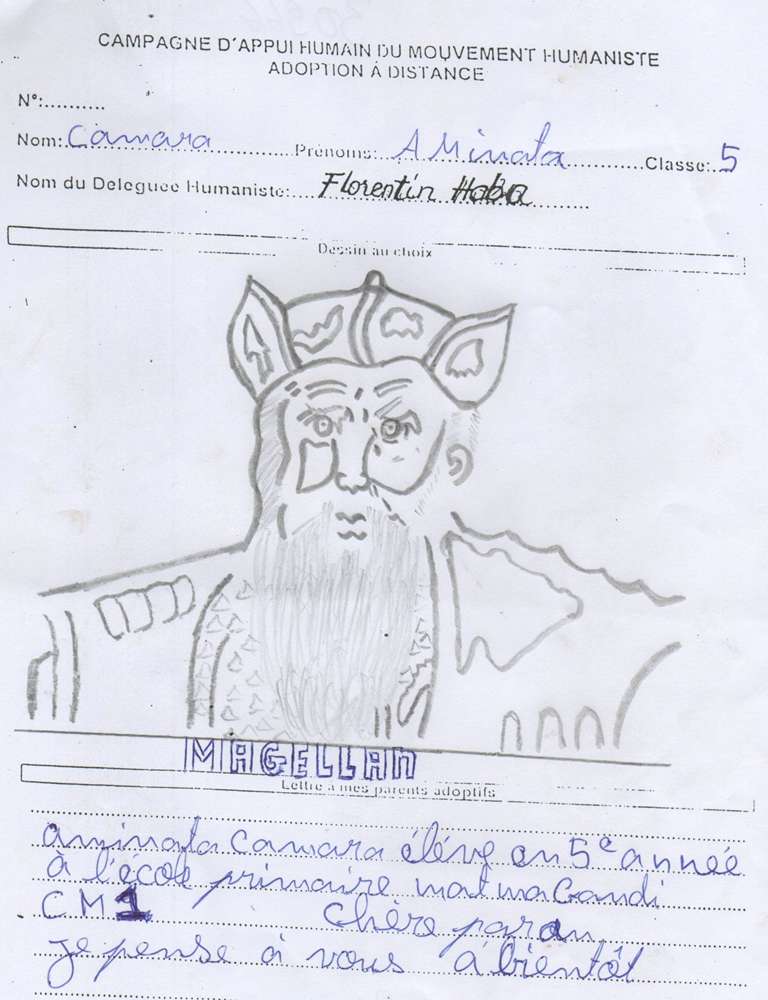 CAMPAGNE D'APPUI HUMAIN DU MOUVEMENT HUMANISTE
ADOPTION À DISTANCE
N°:..........
Nom: Camara Prénoms: AMinata Classe: 5
Nom du Deleguee Humaniste: Florentin Haba
Dessin au choix
MAGELLAN
Lettre à mes parents adoptifs
aminata camara élève en 5e année
à l'école primaire matma Gandi
CM1 chère paran
je pense à vous à bientôt